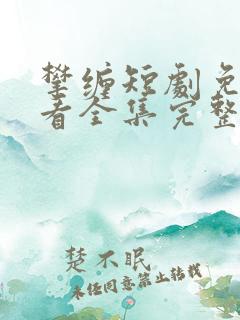 攀缠短劇免
看全集完整
楚不眠
未经同意禁止转载